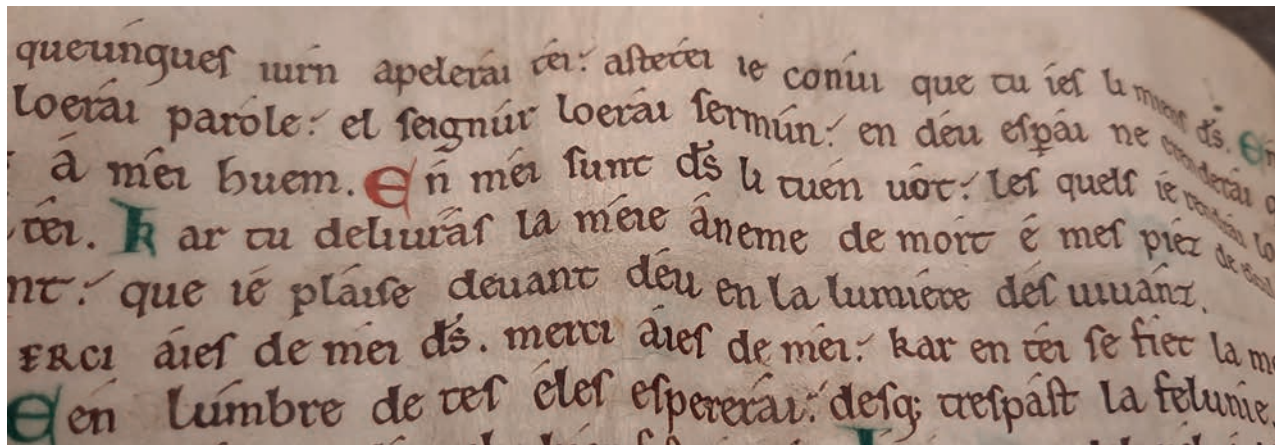 queúnqueſ iúrn apelerái téi: aſtetéi ie coniúi que tu iéſ li mienſ d̅ſ. En
loerái paróle: el ſeignúr loerái ſermún: en déu eſpái ne crenderái
á méi huem. En méi ſunt d̅ſ li tuén uót: leſ quelſ ié rendrái lo
téi. Kar tu deliuráſ la méie áneme de mort é meſ piéz de
nt: que ié pláiſe deuant déu en la lumiére déſ uiuánz.
ERCI áieſ de méi d̅ſ. merci áieſ de méi: kar en téi ſe fiet la m
E en lúmbre de teſ éleſ eſpererái: deſq; treſpáſt la felunie.